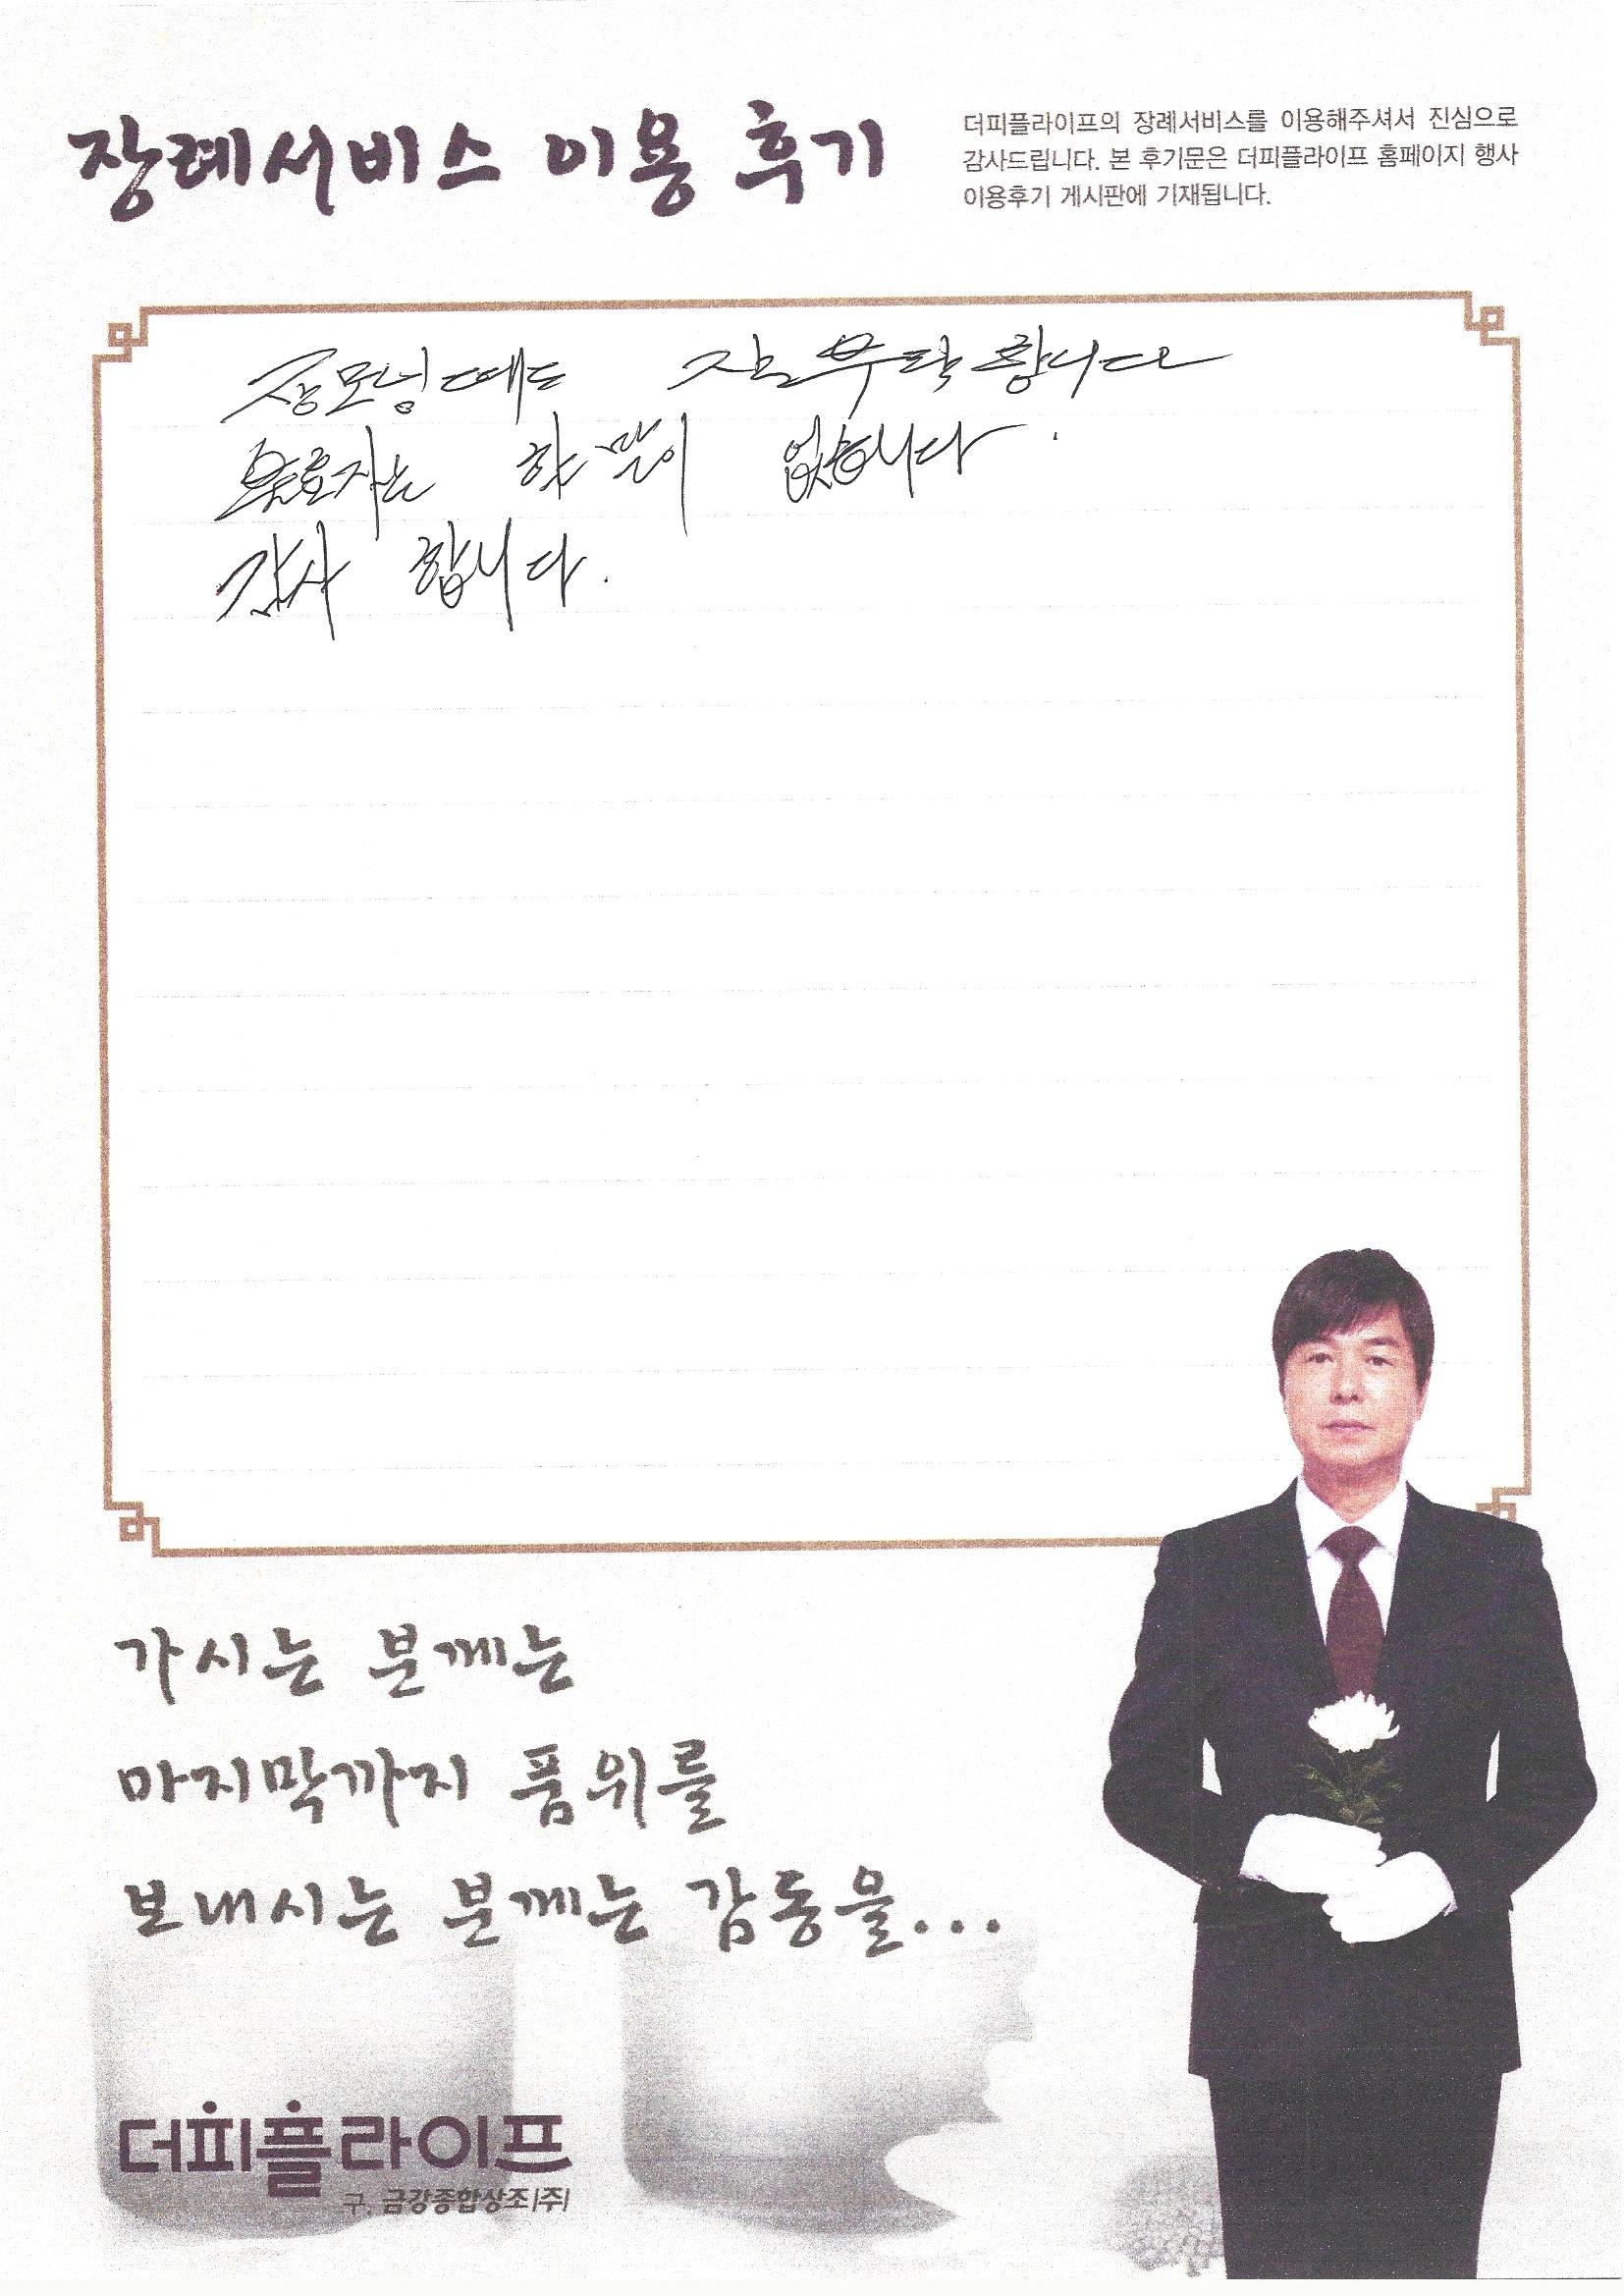 장례서비스 이용 후기
더피플라이프의 장례서비스를 이용해주셔서 진심으로
감사드립니다. 본 후기문은 더피플라이프 홈페이지 행사
이용후기 게시판에 기재됩니다.
장모님때도 잘 부탁합니다
불효자는 할 말이 없습니다.
감사 합니다.
가시는 분께는
마지막까지 품위를
보내시는 분께는 감동을...
더피플라이프
구. 금강종합상조(주)